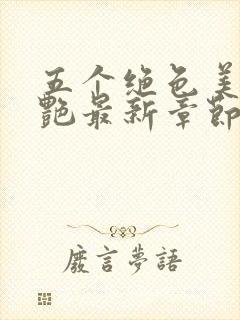 五个绝色美
艳最新章节
廢言夢語